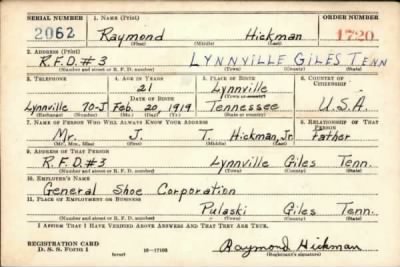 SERIAL NUMBER 1. NAME (Print) ORDER NUMBER
2062 Raymond Hickman 1720
(First) (Middle) (Last)
2. ADDRESS (Print)
R.F.D.#3 LYNNVILLE GILES TENN
(Number and street or R. F. D. number) (Town) (County) (State)
3. TELEPHONE 4. AGE IN YEARS 5. PLACE OF BIRTH 6. COUNTRY OF CITIZENSHIP
21 Lynnville
DATE OF BIRTH (Town or county)
Lynnville 70-J Feb. 20, 1919 Tennessee U.S.A.
(Exchange) (Number) (Mo.) (Day) (Yr.) (State or country)
7. NAME OF PERSON WHO WILL ALWAYS KNOW YOUR ADDRESS 8. RELATIONSHIP OF THAT PERSON
Mr. J. T. Hickman, Jr Father
(Mr., Mrs., Miss) (First) (Middle) (Last)
9. ADDRESS OF THAT PERSON
R.F.D.#3 Lynnville Giles Tenn.
(Number and street or R. F. D. number) (Town) (County) (State)
10. EMPLOYER'S NAME
General Shoe Corporation
11. PLACE OF EMPLOYMENT OR BUSINESS
Pulaski Giles Tenn.
(Number and street or R. F. D. number) (Town) (County) (State)
I AFFIRM THAT I HAVE VERIFIED ABOVE ANSWERS AND THAT THEY ARE TRUE.
REGISTRATION CARD
D. S. S. Form 1 16—17105 Raymond Hickman
(Registrant's signature)